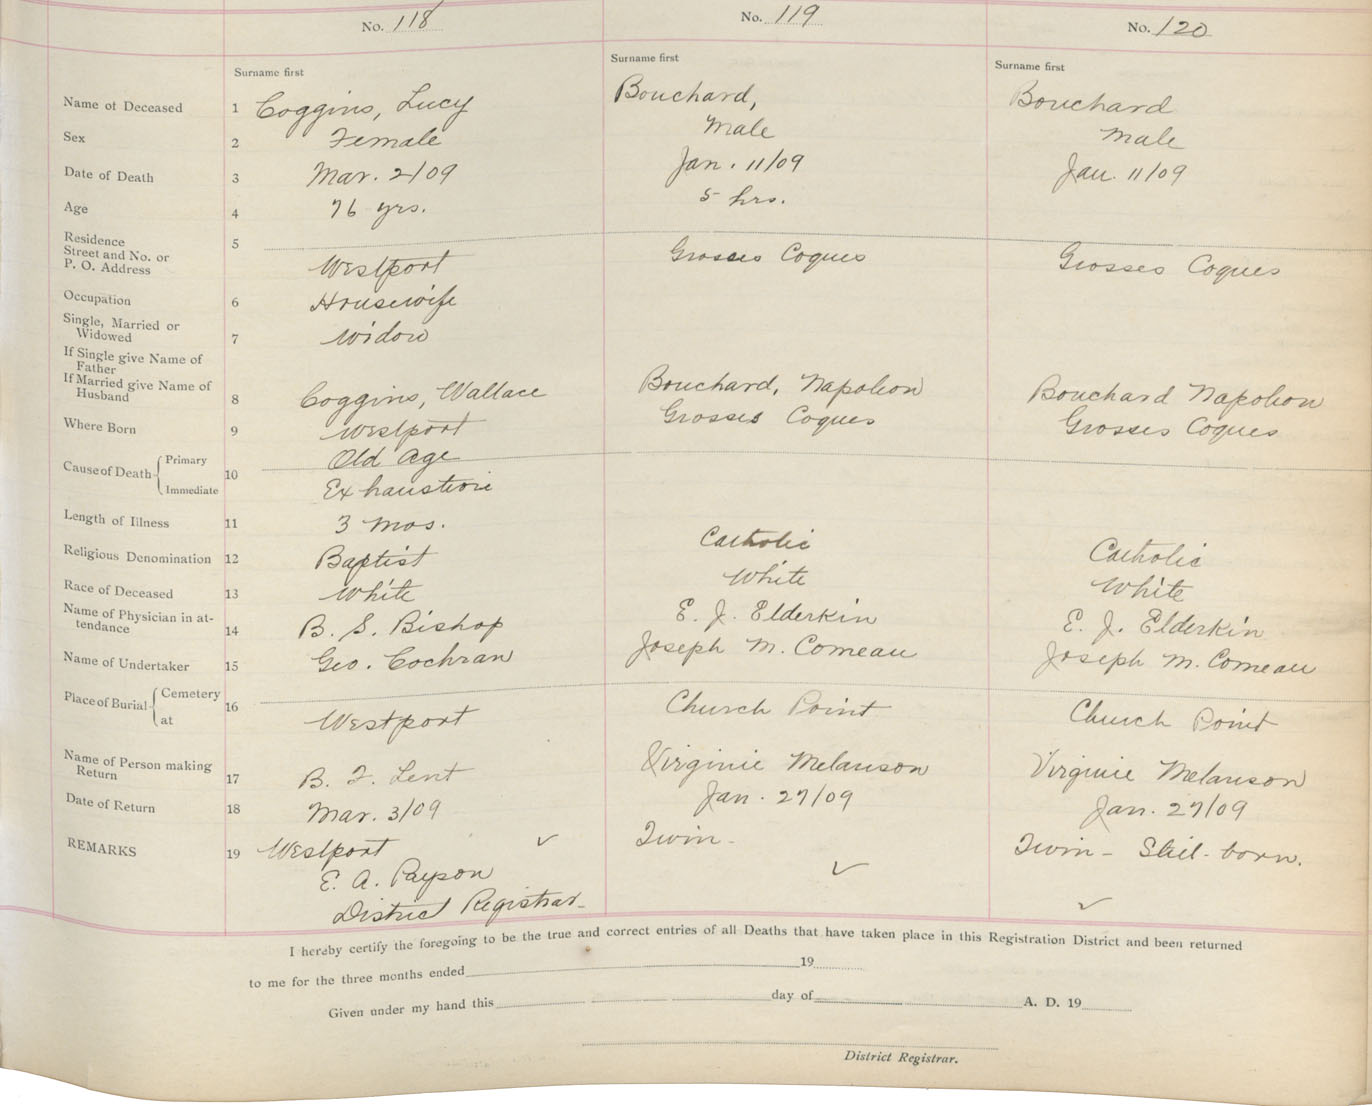 No. 118 No. 119 No. 120
Surname first Surname first Surname first
Name of Deceased 1 Coggins, Lucy Bouchard, Bouchard
Sex 2 Female Male Male
Date of Death 3 Mar. 2/09 Jan. 11/09 Jan. 11/09
Age 4 76 yrs. 5 hrs.
Residence 5
Street and No. or
P. O. Address Westport Grosses Coques Grosses Coques
Occupation 6 Housewife
Single, Married or
Widowed 7 Widow
If Single give Name of
Father
If Married give Name of
Husband 8 Coggins, Wallace Bouchard, Napoleon Bouchard Napoleon
Where Born 9 Westport Grosses Coques Grosses Coques
Cause of Death Primary 10 Old Age
Immediate Exhaustion
Length of Illness 11 3 mos.
Religious Denomination 12 Baptist Catholic Catholic
Race of Deceased 13 White White White
Name of Physician in at-
tendance 14 B. S. Bishop E. J. Elderkin E. J. Elderkin
Name of Undertaker 15 Geo. Cochran Joseph M. Comeau Joseph M. Comeau
Place of Burial Cemetery 16
at Westport Church Point Church Point
Name of Person making
Return 17 B. F. Lent Virginie Melanson Virginie Melanson
Date of Return 18 Mar. 3/09 Jan. 27/09 Jan. 27/09
REMARKS 19 Westport ✓ Twin - Twin - Still-born.
E. A. Payson ✓
District Registrar - ✓
I hereby certify the foregoing to be the true and correct entries of all Deaths that have taken place in this Registration District and been returned
to me for the three months ended 19
Given under my hand this day of A. D. 19
District Registrar.